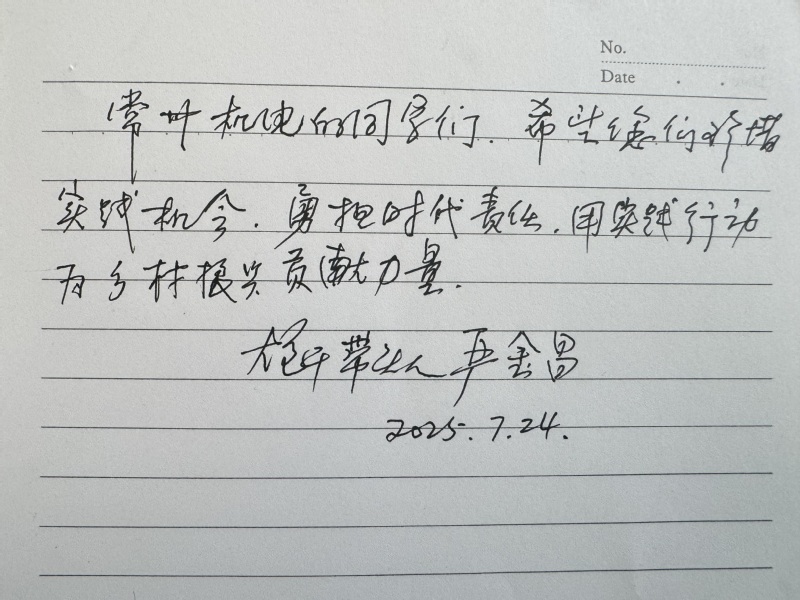 No.
Date . .
常州机电的同学们，希望您们珍惜
实践机会，勇担时代责任，用实践行动
为乡村振兴贡献力量.
大包干带头人 严金昌
2025.7.24.